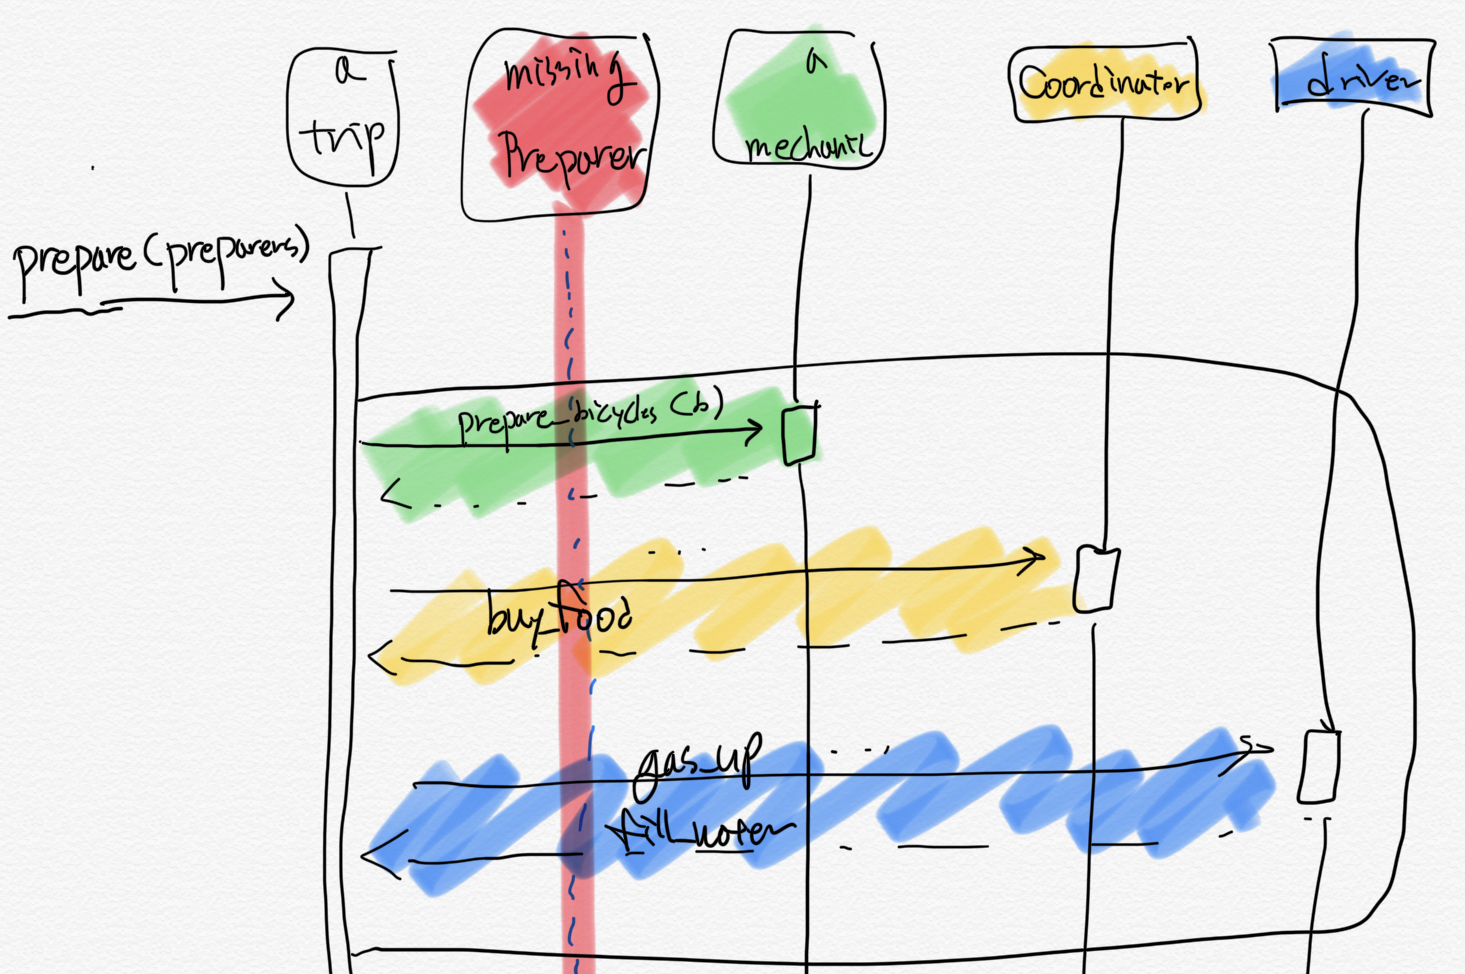 a
trip
missing
Preparer
a
mechanic
Coordinator
driver
prepare(preparers)
prepare_bicycles (b)
buy_food
gas_up
fill_water